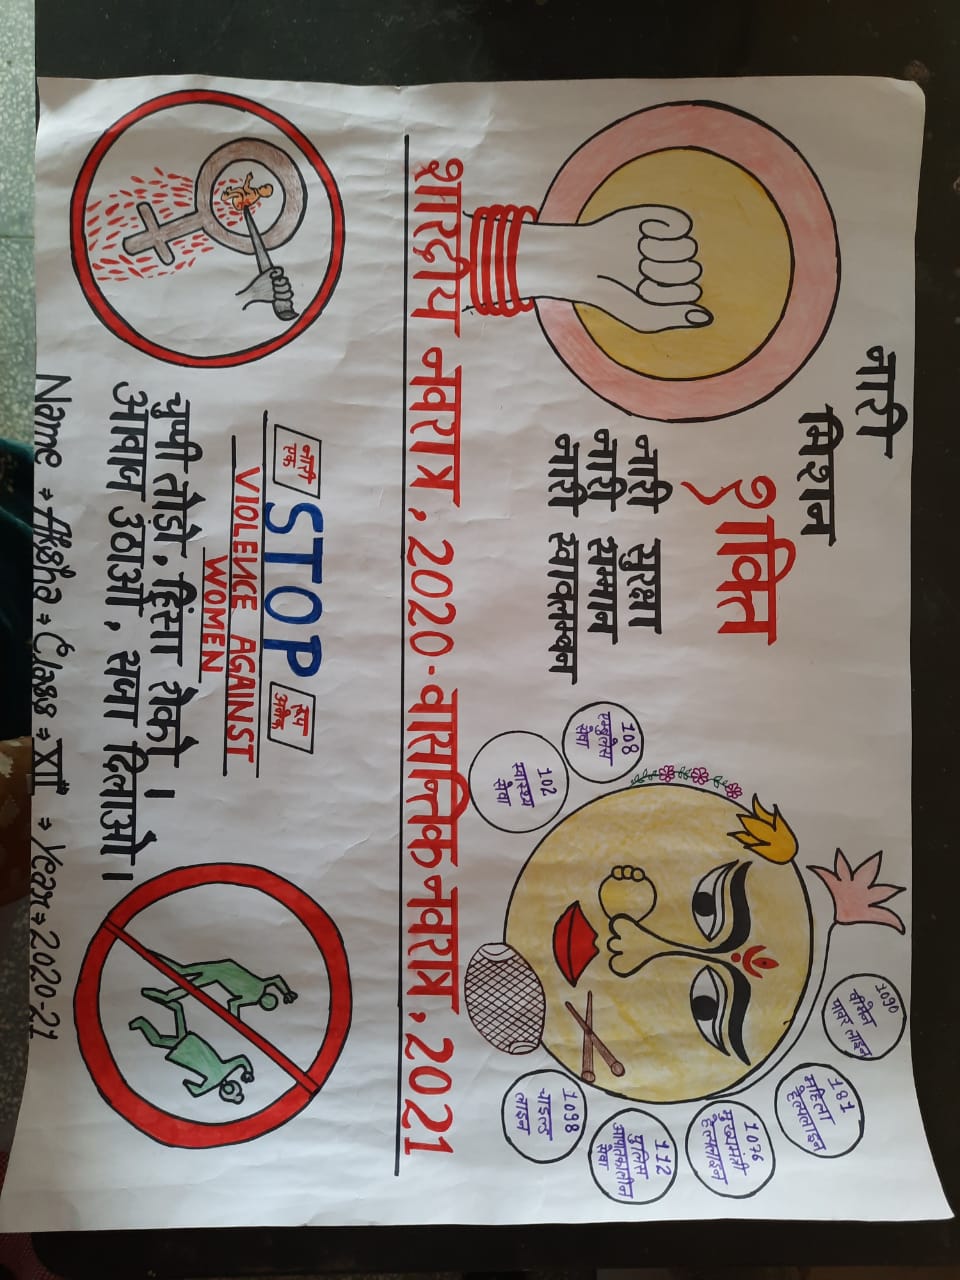 नारी
मिशन
शक्ति
नारी सुरक्षा
नारी सम्मान
नारी स्वावलम्बन
108
एम्बुलेंस
सेवा
102
स्वास्थ्य
सेवा
1090
वीमेन
पावर लाइन
181
महिला
हेल्पलाइन
1076
मुख्यमंत्री
हेल्पलाइन
112
पुलिस
आपातकालीन
सेवा
1098
चाइल्ड
लाइन
शारदीय नवरात्र, 2020-वासन्तिक नवरात्र, 2021
नारी
एक
STOP
रूप
अनेक
VIOLENCE AGAINST
WOMEN
चुप्पी तोड़ो, हिंसा रोको।
आवाज उठाओ, सजा दिलाओ।
Name ⇒ Aksha ⇒ Class ⇒ XII ⇒ Year ⇒ 2020-21